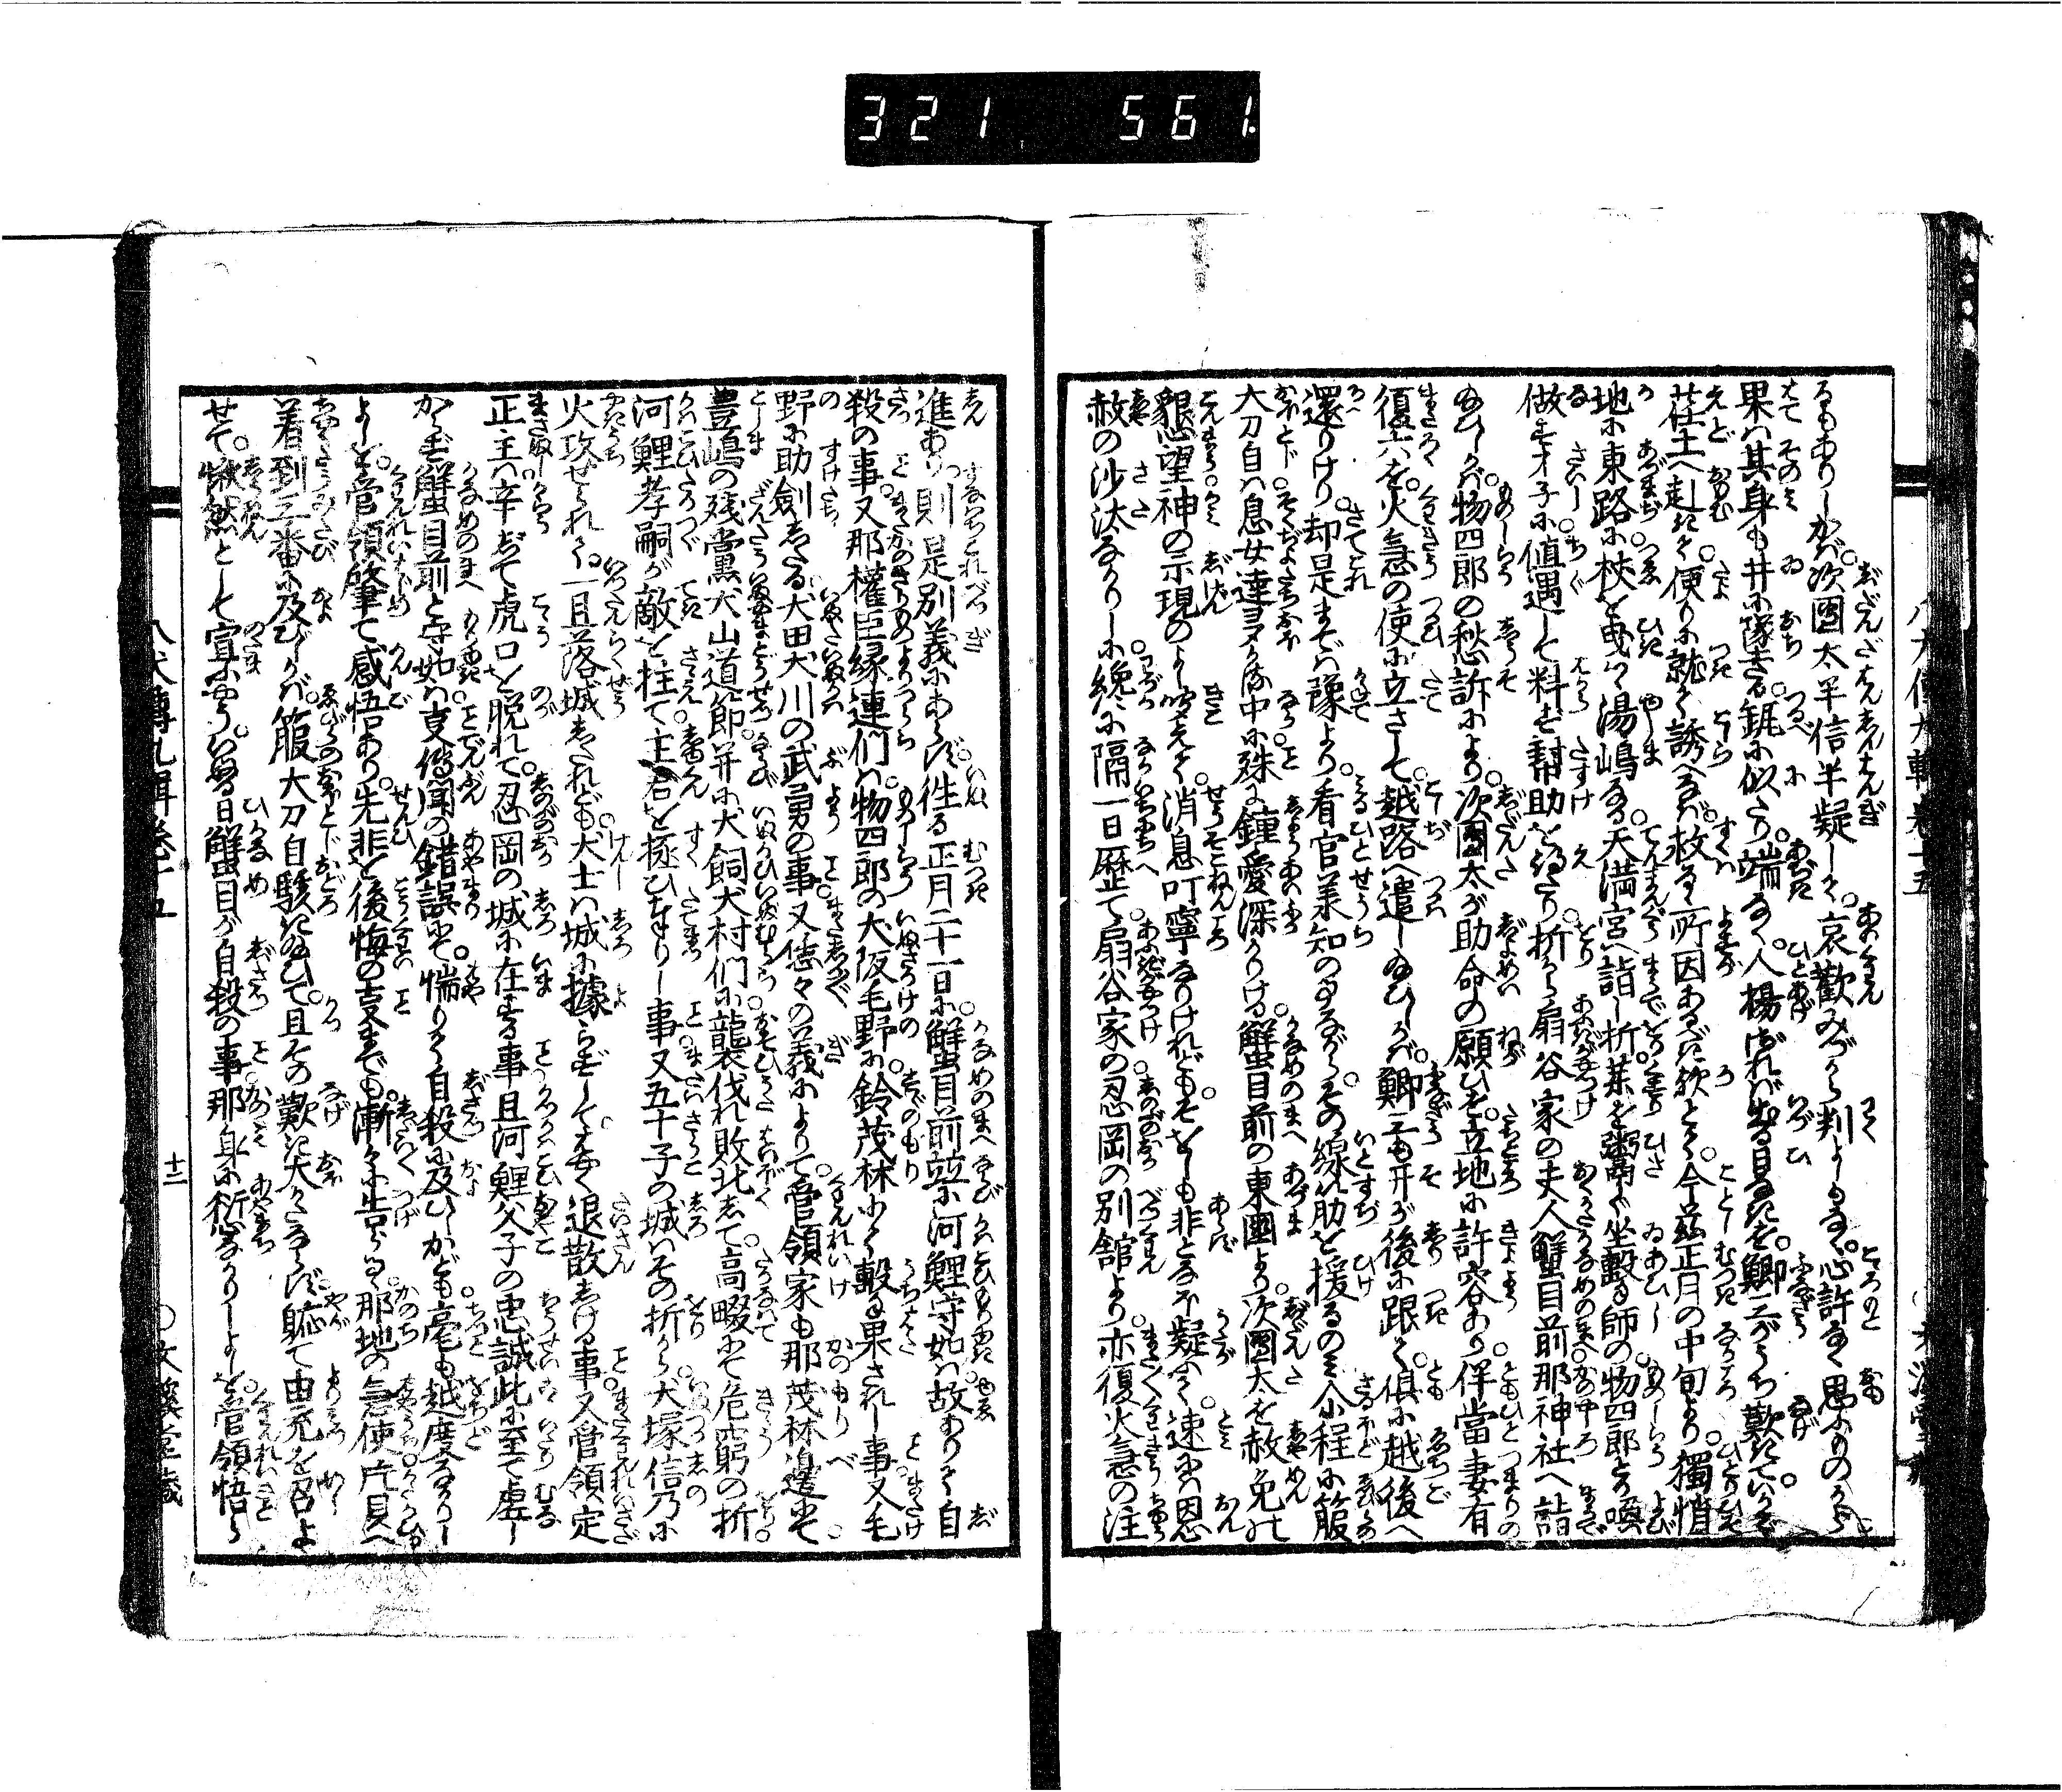 321 561
るもありしかば。次團太半信半疑して。哀歎みづから判よしもなく。心許なく思ふものから
果は其身も井に墜たる。鉏に似たり。端なく人揚ざれば出る日なきを。鯽三がうち歎きていかで
荘士へ赴きて。便りに就て誘へなば。救る所因あるべき欤とて。今茲正月の中旬より。獨悄
地に東路に。杖を曳つゝ湯嶋なる。天満宮へ詣し折。藥を鬻ぐ坐撃師の物四郎とか喚
做すオ子に値遇して料ず幇助を得たり。折から扇谷家の夫人蟹目前那神社へ詣
給ひしが。物四郎の愁訴により。次團太が助命の願ひを。立地に許容あり。伴當妻有
復六を。火急の使に立さして。越路へ遣し給ひしが。鯽三も亦後に跟て。倶に越後へ
還りけり。却是までは豫より。看官萊知の事ながら。その線筋を援るのみ。介程に箙
大刀自は。息女達多かる中に。殊に鐘愛深かりける。蟹目前の東國より。次團太を赦免の
懇望。神の示現のよし聞えて。消息叮嚀なりけれども。そをしも非となす疑なく。速に恩
赦の沙汰ありしに。纔に隔一日歴て。扇谷家の忍岡の別舘より。亦復火急の注
進あり。則是別義にあらず。往る正月二十一日に。蟹目前並に河鯉守如は。故ありて自
殺の事。又那權臣縁連們は。物四郎の犬阪毛野に。鈴茂林にて撃果されし事。又毛
野に助劍したる。犬田犬川の武勇の事。又恁々の義によりて。管領家も那茂林邊にて
豊嶋の殘黨犬山道節。并に犬飼犬村們に襲伐れ敗北して。高畷にて危窮の折。
河鯉孝嗣が敵を柱て。主君を拯ひまゐらせし事。又五十子の城はその折から。犬塚信乃に
火攻せられて。一旦落城したれども。犬士は城に據らずして。夭く退散しける事。又管領定
正主は辛じて虎口を脱れて。忍岡の城に在する事。且河鯉父子の忠誠。此に至て虚し
からず。蟹目前と守如は。支傳聞の錯誤にて。惴りて自殺に及びしかども。毫も越度なかりし
よしを。管領肇て感悟あり。先非を後悔の事までも。漸々に告らるゝ。那地の急使。片貝へ
着到三番に及びしが。箙大刀自駭き給ひて。且その歎き大かたならず。軈て由充を召よ
せて。愀然として宣ふやう。いぬる日蟹目が自殺の事。那身に愆なかりしよしを。管領悟ら
八犬傳九輯巻十五
十二
〇文溪堂藏